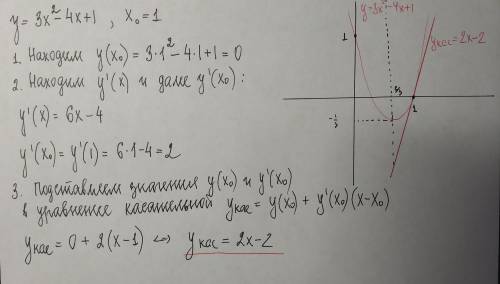 y = 3x² - 4x + 1 , x₀ = 1
1. Находим y(x₀) = 3·1² - 4·1 + 1 = 0
2. Находим y'(x) и далее y'(x₀) :
y'(x) = 6x - 4
y'(x₀) = y'(1) = 6·1 - 4 = 2
3. Подставляем значения y(x₀) и y'(x₀)
в уравнение касательной yкас = y(x₀) + y'(x₀)(x - x₀)
yкас = 0 + 2(x - 1) <=> yкас = 2x - 2
y = 3x² - 4x + 1
yкас = 2x - 2
1
2/3
1
-1/3